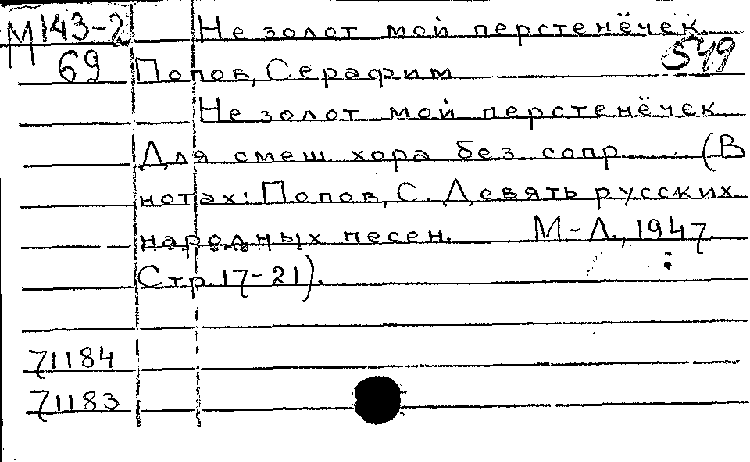 М143-2 Не золот мой перстенёчек
69 Попов, Серафим 549
Не золот мой перстенёчек
Для смеш хора без сопр (В
нотах: Попов, С. Девять русских
народных песен. М-Л., 1947
Стр. 17-21).
71184
71183